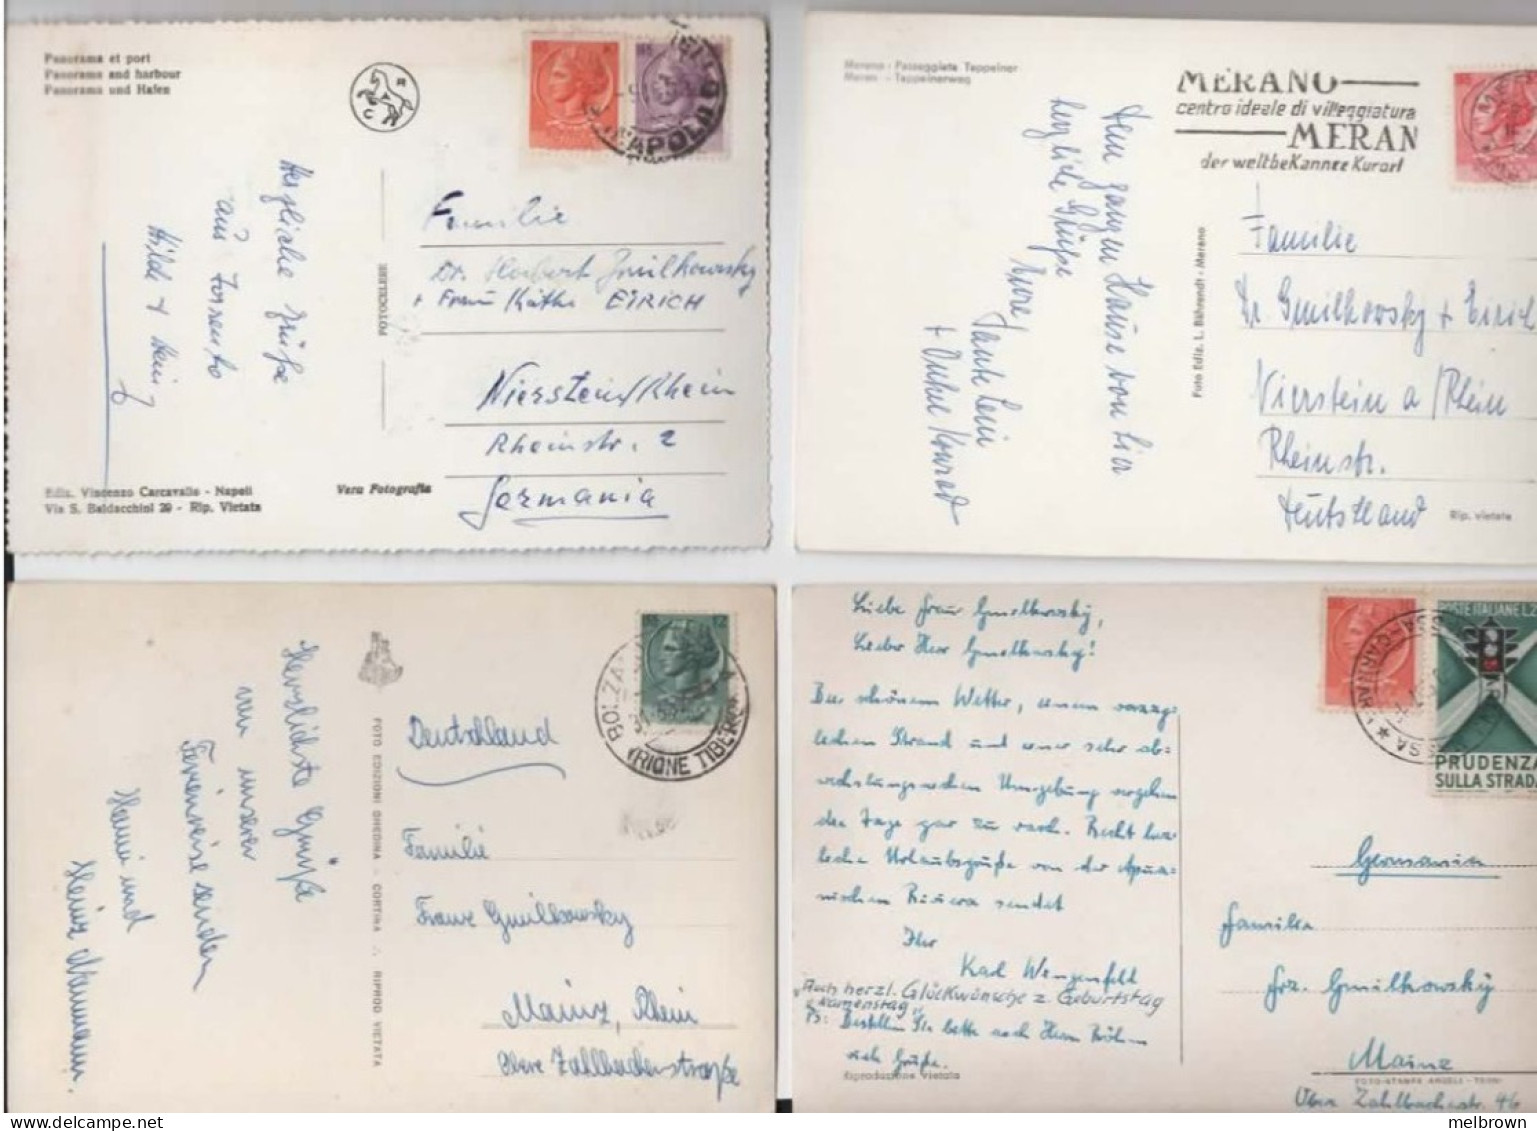 Panorama et port
Panorama and harbour
Panorama und Hafen
R
C
Herzliche Grüße
aus Sorrento
Hilde &
FOTOCELERE
Familie
Dr. Herbert Gmilkowsky
+ Frau Käthe EIRICH
Nierstein/Rhein
Rheinstr. 2
Germania
Ediz. Vincenzo Carcavallo - Napoli
Via S. Baldacchini 29 - Rip. Vietata
Vera Fotografia
Merano - Passeggiata Tappeiner
Meran - Tappeinerweg
MERANO
centro ideale di villeggiatura
MERAN
der weltbekannte Kurort
Dem ganzen Hause von hier
herzliche Grüße
Eure Tante Leni
+ Onkel Konrad
Foto Ediz. L. Bährendt - Merano
Familie
Dr. Gmilkowsky + Eirich
Nierstein a/Rhein
Rheinstr.
Deutschland
Rip. vietata
Herzlichste Grüße
von unserer
Ferienreise senden
Hanni und
Heinz
FOTO EDIZIONI GHEDINA - CORTINA ∴ RIPROD. VIETATA
BOLZA
(RIONE TIBER
Deutschland
Familie
Franz Gmilkowsky
Mainz, Rhein
Obere Zahlbacherstraße
Liebe Frau Gmilkowsky,
Lieber Herr Gmilkowsky!
Bei schönem Wetter, einem vorzüg-
lichen Strand und einer sehr ab-
wechslungsreichen Umgebung vergehen
die Tage gar zu rasch. Recht herz-
liche Urlaubsgrüße von der Apua-
nischen Riviera sendet
Ihr
Karl Wengenfeld
"Auch herzl. Glückwünsche z. Geburtstag
Namenstag"
PS: Bestellen Sie bitte auch Herrn Böhm
viele Grüße.
Riproduzione vietata
POSTE ITALIANE L.2
PRUDENZA
SULLA STRADA
Germania
Familie
Frz. Gmilkowsky
Mainz
Obere Zahlbacherstr. 46
melbrown